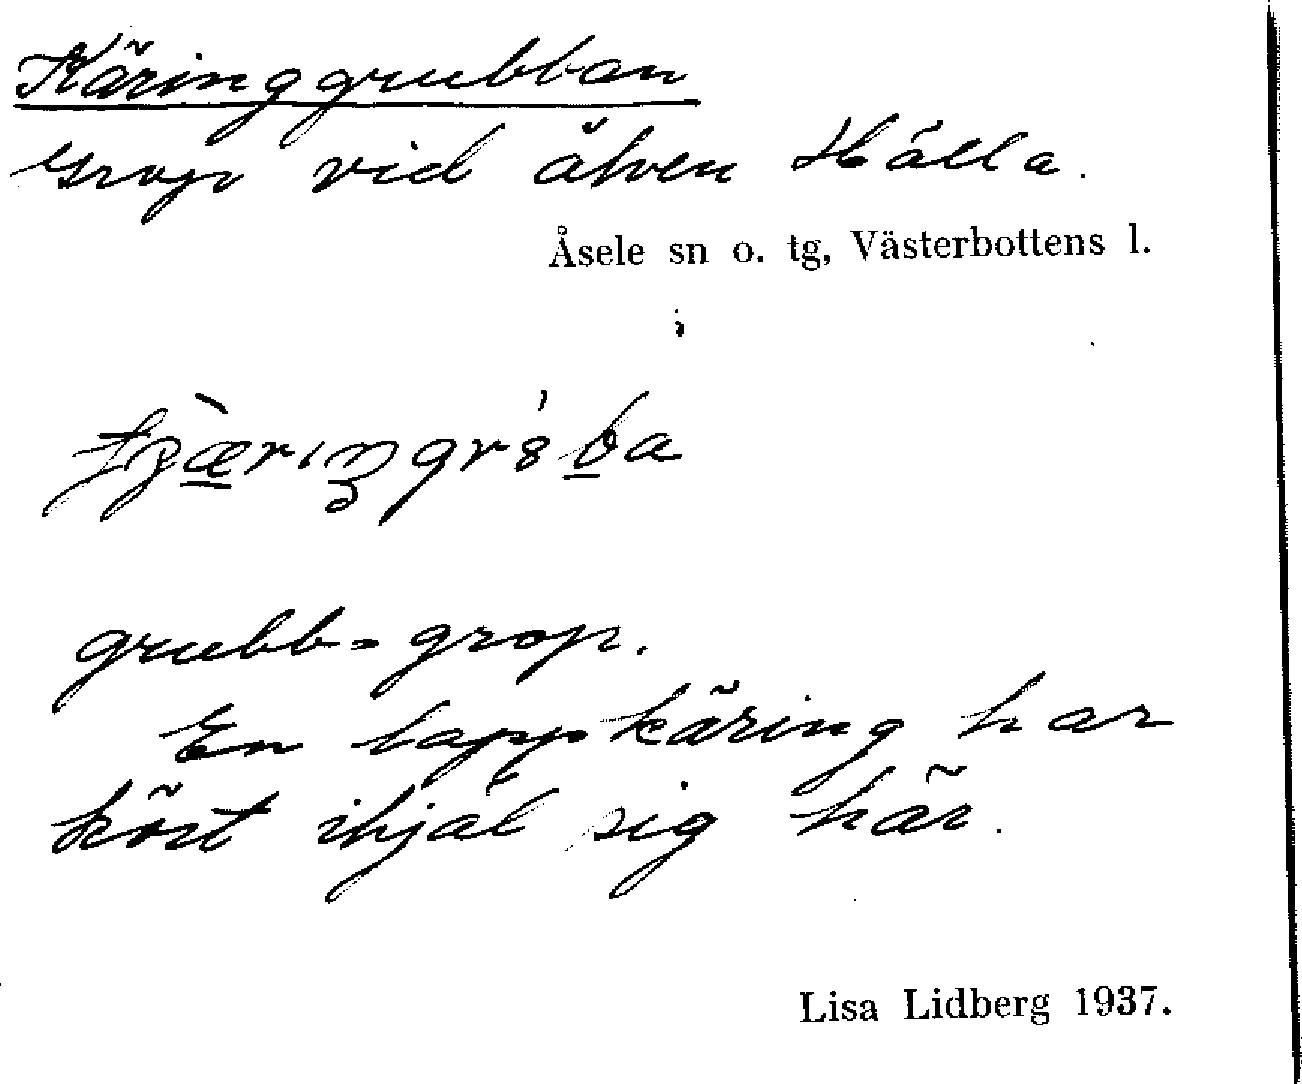 Käringgrubban
Grop vid älven Hälla.
Åsele sn o. tg, Västerbottens l.
grubb = grop.
En lappkäring har
kört ihjäl sig här.
Lisa Lidberg 1937.